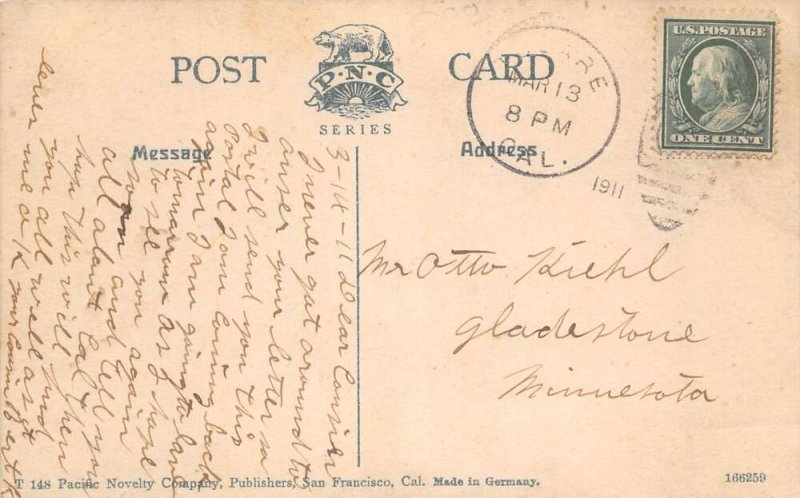 POST CARD
P·N·C
SERIES
U.S. POSTAGE
ONE CENT
TULARE
MAR 13
8 PM
CAL.
1911
Message
Address
3-14-11 Dear Consier
I never got around to
anser you letter so
I will send you this
Postal I am coming back
again I am going to leave
tomarrow as I hope
to see you again
soon and tell you
all about Cal I
hope this will find
you all well and
Mr Otto Kiehl
Gladestone
Minnesota
T 148 Pacific Novelty Company, Publishers, San Francisco, Cal. Made in Germany.
166259